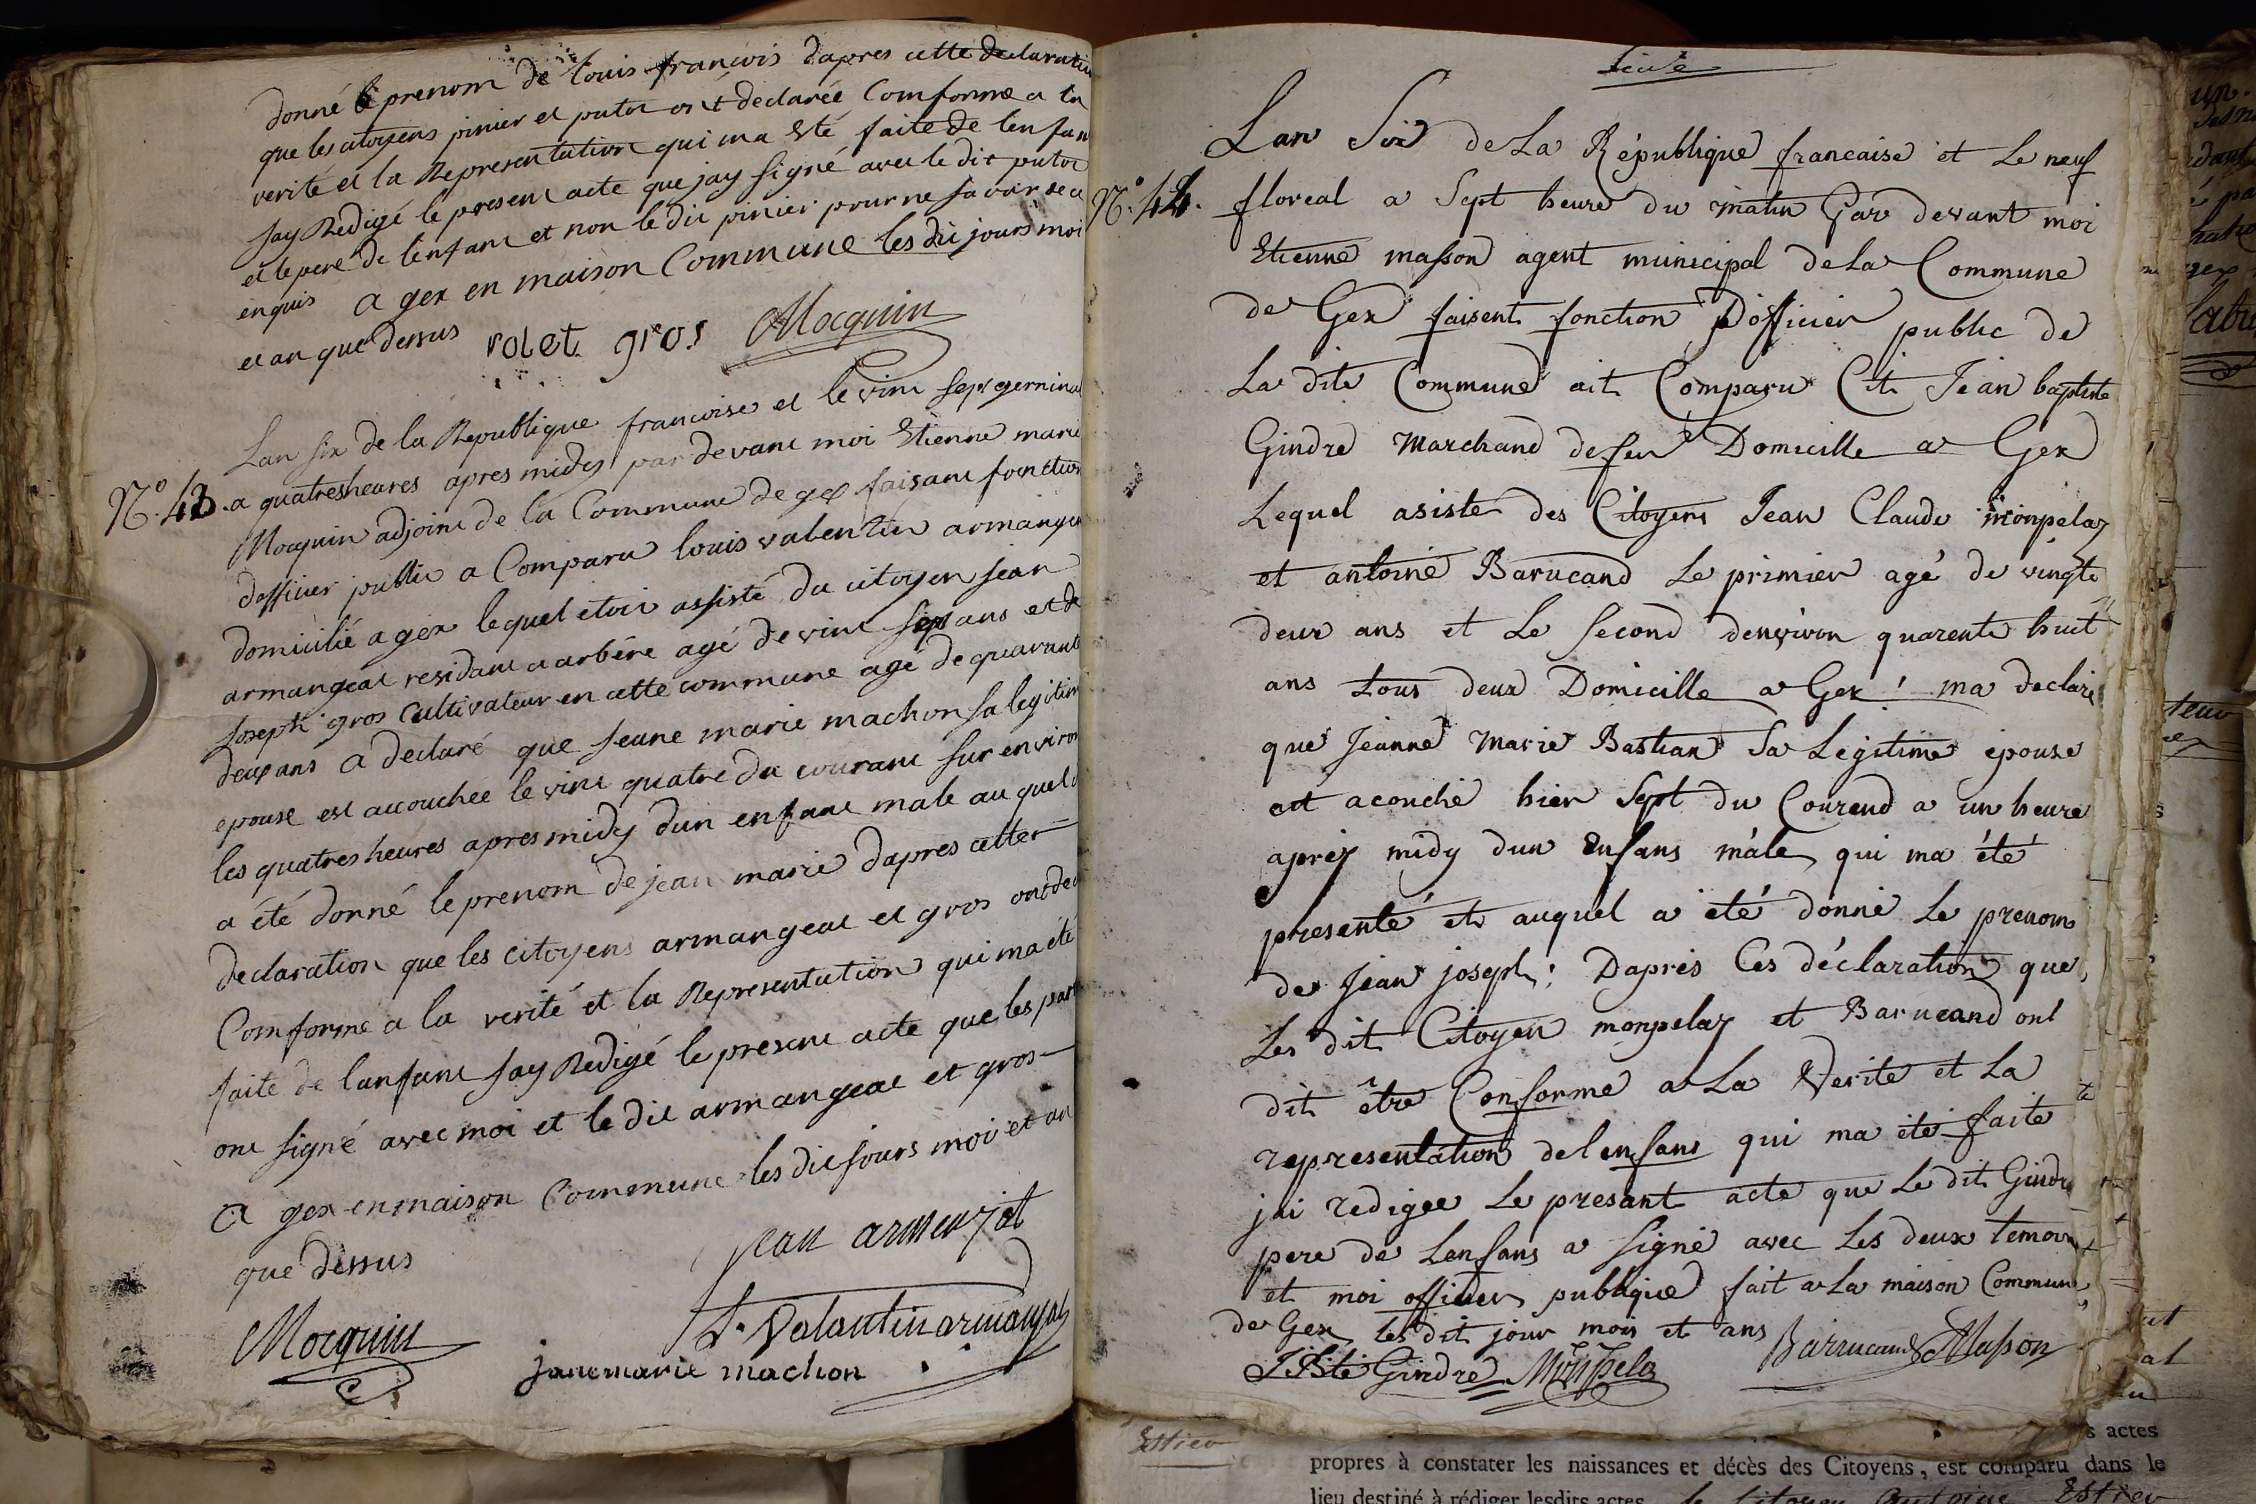 donné le prenom de louis françois dapres cette declaration
que les citoyens pinier et putor ont declarée Comforme a la
verité et la Representation qui ma Eté faite de lenfan
Jay Redigé le present acte que jay Signé avec le dit putor
et le pere de lenfant et non le dit pinier pour ne savoir de ce
enquis a gex en maison Commune les dit jours moi
et an que dessus
rolet gros Mocquin
Lan six de la Republique francoise et le vint sept germinal
N.° 43. a quatres heures apres midy par devant moi Etienne marie
Mocquin adjoint de la Commune de gex faisant fonction
dofficier public a Comparu louis valentin armangea
domicilié a gex lequel etoit assisté du citoyen jean
armangeat residant a arbére agé de vint sept ans et de
Joseph gros Cultivateur en cette commune agé de quarante
deux ans a declaré que jeane marie machon sa legitim
epouse est accouchée le vint quatre du courant sur environ
les quatres heures apres midy dun enfant male au quel
a été donné le prenom de jean marie dapres cette
declaration que les citoyens armangeat et gros ont de
Comforme a la verité et la Representation qui ma été
faite de lanfant Jay Redigé le present acte que les part
ont signé avec moi et le dit armangeat et gros
a gex en maison Commune les dit jours moi et an
que dessus
jean armenjat
Mocquin
L. Valantin armanjat
janemarie machon
Lan Six de La République francaise et Le neuf
N.° 44. floreal a Sept heure du matin Par devant moi
Etienne masson agent municipal de La Commune
de Gex faisent fonction Dofficier public de
La dite Commune ait Comparu Cit Jean baptiste
Gindre Marchand de fer Domicille a Gex
Lequel asisté des Citoyens Jean Claude monpelaz
et antoine Barucand Le primier agé de vingte
deux ans et Le Second denviron quarente huit
ans tous deux Domicille a Gex ! ma declaré
que Jeanne Marie Bastian Sa Légitime épouse
ait aconché hier Sept du Courend a un heure
apréz midy dun Enfans mâle qui ma été
présenté et auquel a été donné Le prenom
de Jean joseph : Daprés Ces déclaration que
Les dit Citoyen monpelaz et Barucand ont
dit être Conforme a La Verite et La
representation de l enfans qui ma été faite
jai redigee Le presant acte que Le dit Gindre
pere de Lenfans a Signé avec Les deux temoin
et moi officier publique fait a La maison Commune
de Gex les dit jour mois et ans
J Bte Gindre Monpela Barrucand Masson
Estieu
s actes
propres à constater les naissances et décès des Citoyens, est comparu dans le
lieu destiné à rédiger lesdits actes le Citoyen Estieu